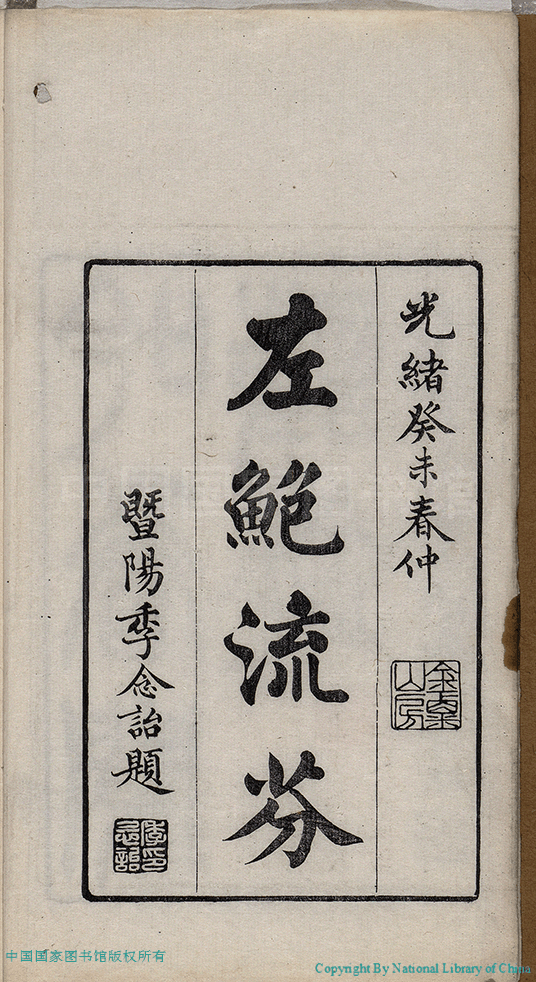 光緒癸未春仲
左鮑流芬
暨陽季念詒題
季印念詒
中国国家图书馆版权所有
Copyright By National Library of China